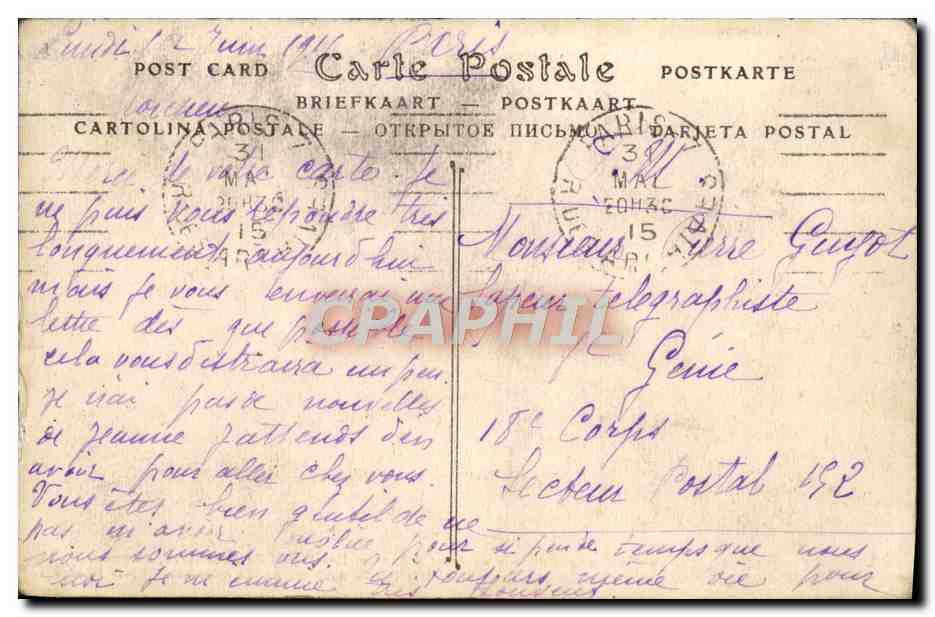 Lundi Juin Paris
POST CARD Carte Postale POSTKARTE
BRIEFKAART — POSTKAART
CARTOLINA POSTALE — ОТКРЫТОЕ ПИСЬМО — TARJETA POSTAL
PARIS
31
MAI
20H30
15
PARIS
31
MAI
20H30
15
F. M.
de votre carte. Je
ne puis vous répondre très
longuement aujourd'hui
mais je vous enverrai une
lettre dès que possible
cela vous distraira un peu.
Je n'ai pas de nouvelles
de Jeanne j'attends d'en
avoir pour aller chez vous.
Vous êtes bien gentil de ne
pas m'avoir oubliée pour si peu de temps que nous
nous sommes vus.
moi Je toujours même vie pour
Monsieur Pierre Guyot
Sapeur télégraphiste
Génie
18e Corps
Secteur Postal 152
CPAPHIL